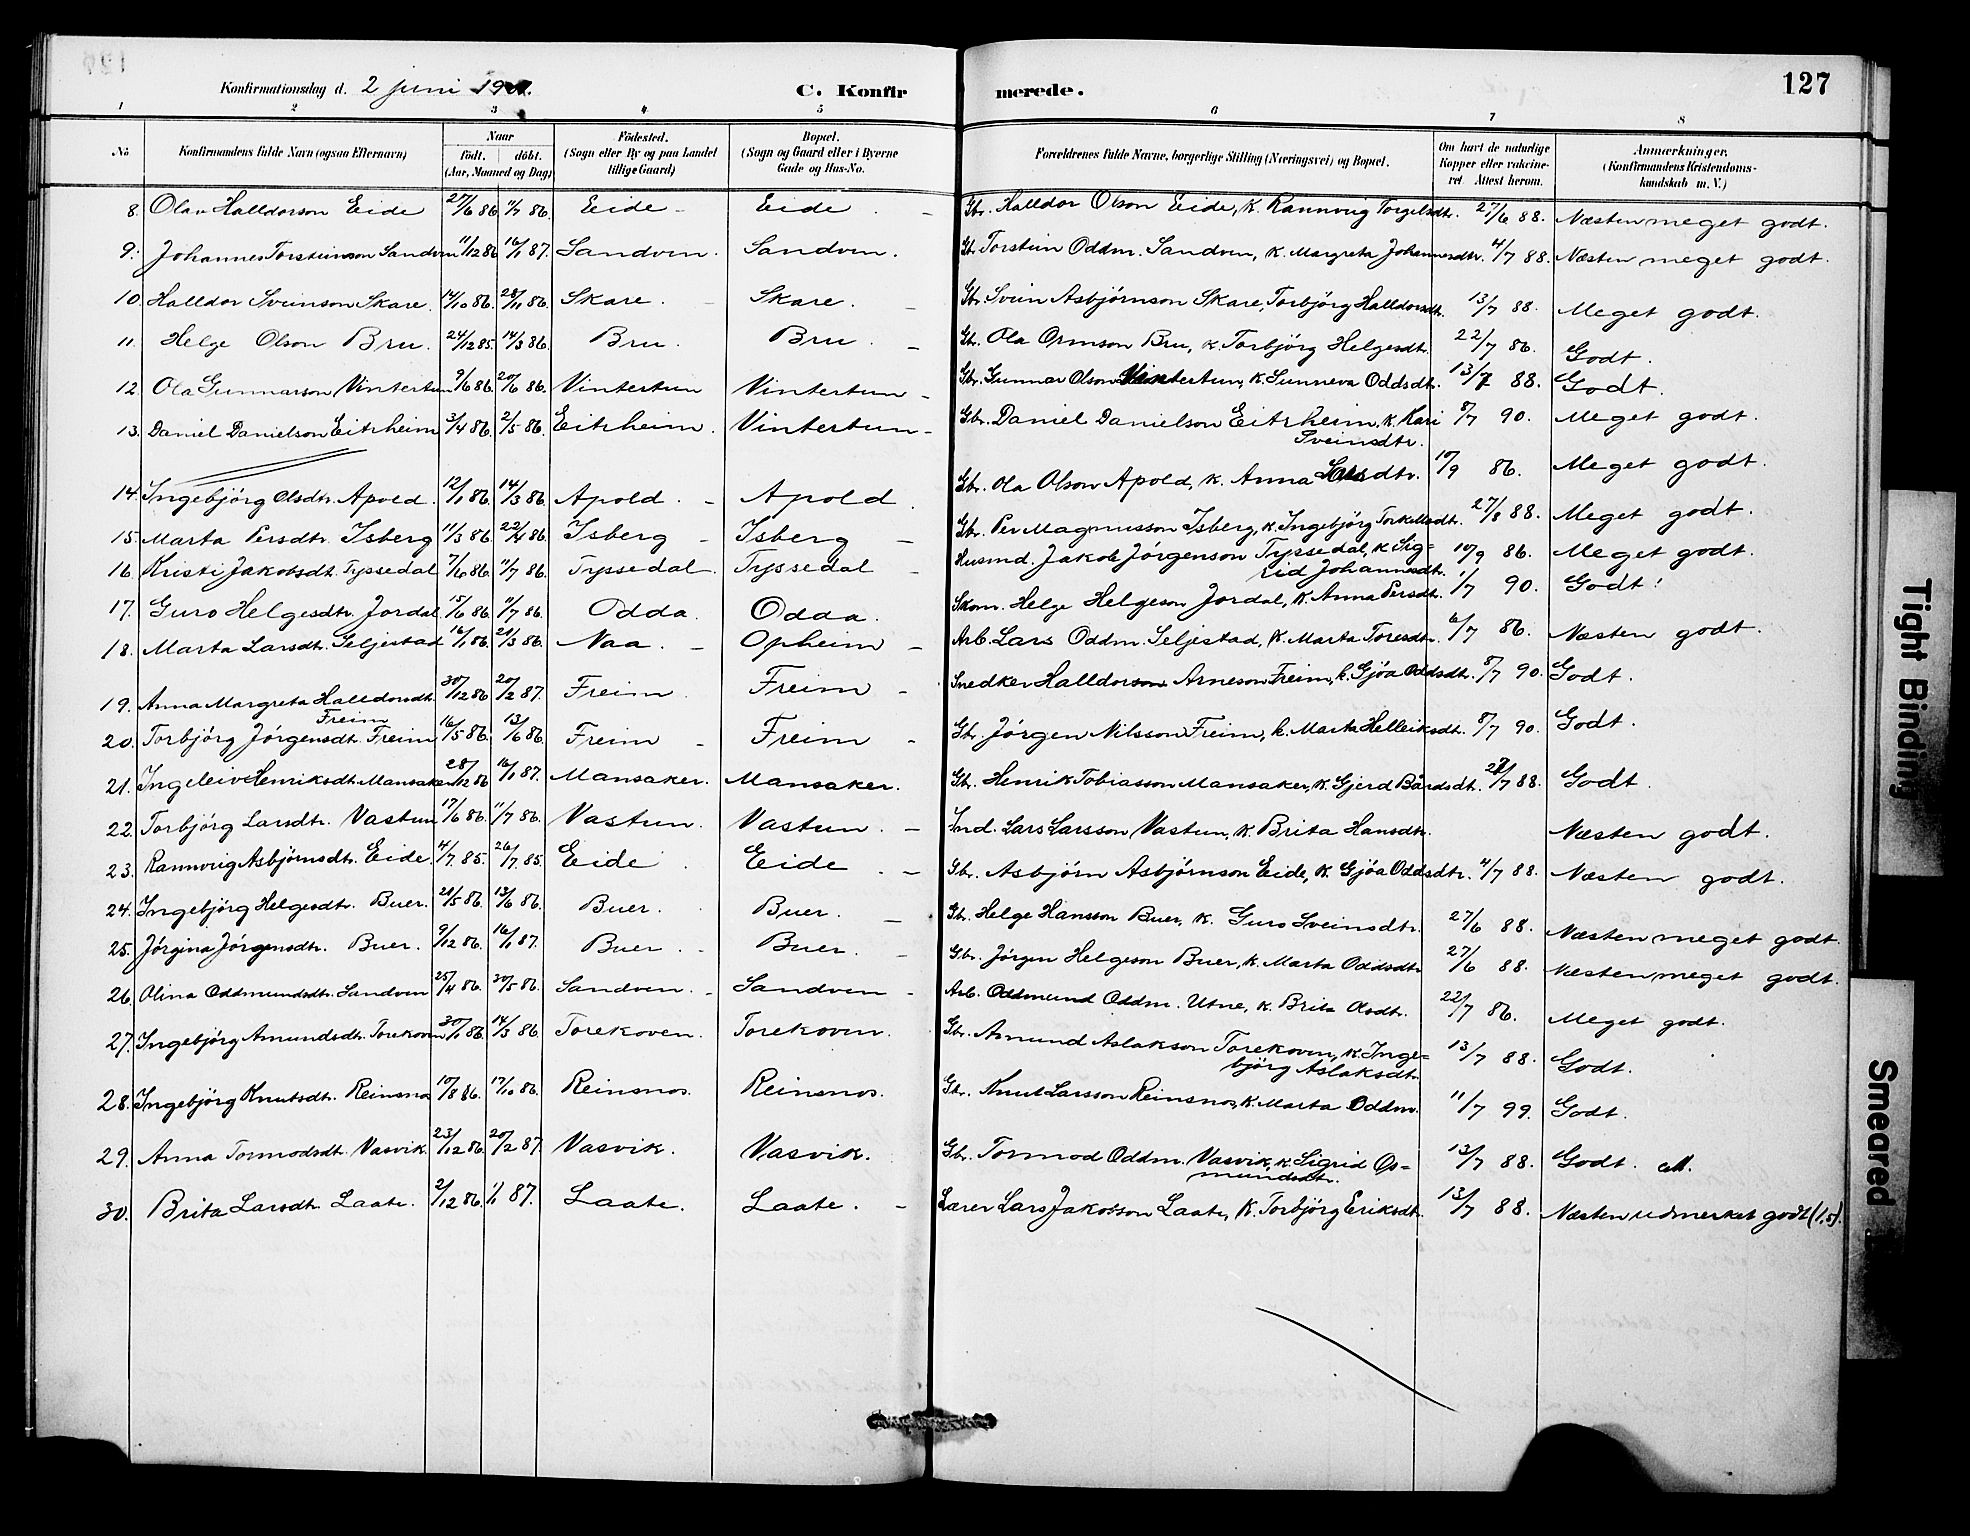 127
Konfirmationsdag d. 2 juni 1901.
C. Konfirmerede.
1 2 3 4 5 6 7 8
No
Konfirmandens fulde Navn (ogsaa Efternavn)
Naar
födt. döbt.
(Aar, Maaned og Dag)
Födested.
(Sogn eller By og paa Landet
tillige Gaard)
Bopæl.
(Sogn og Gaard eller i Byerne
Gade og Hus-No.
Forældrenes fulde Navne, borgerlige Stilling (Næringsvei) og Bopæl.
Om havt de naturlige
Kopper eller vakcine-
ret. Attest herom.
Anmærkninger,
(Konfirmandens Kristendoms-
kundskab m. V.)
8. Olav Halldorson Eide 27/6 86 11/7 86. Eide - Eide - Gbr. Halldor Olson Eide, K. Rannveig Torgelsdtr. 27/6 88. Næsten meget godt.
9. Johannes Torsteinson Sandven 11/12 86 16/1 87. Sandven. Sandven. Gb. Torstein Oddm. Sandven, K. Margreta Johannesdtr. 4/7 88. Næsten meget godt.
10. Halldor Sveinson Skare. 14/10 86. 28/11 86. Skare. Skare. - Gbr. Svein Asbjörnson Skare, Torbjörg Halldorsdt. 13/7 88. Meget godt.
11. Helge Olson Bru. 24/12 85. 14/3 86. Bru. Bru. - Gb. Ola Ormson Bru, K. Torbjörg Helgesdt. 22/7 86. Godt.
12. Ola Gunnarson Vintertun 9/6 86. 20/6 86. Vintertun Vintertun - Gbr. Gunnar Olson Vintertun, K. Sunneva Oddsdt. 13/7 88. Godt.
13. Daniel Danielson Eitrheim 3/4 86. 2/5 86. Eitrheim. Vintertun - Gbr. Daniel Danielson Eitrheim, K. Kari
Sveinsdtr. 8/7 90. Meget godt.
14. Ingebjörg Olsdtr. Apold. 12/1 86. 14/3 86 Apold. - Apold. Gbr. Ola Olson Apold, K. Anna Larsdtr. 10/9 86. Meget godt.
15. Marta Persdtr. Isberg 11/3 86. 22/4 86. Isberg - Isberg - Gbr. Per Magnusson Isberg, K. Ingebjörg Torkellsdt. 27/8 88. Meget godt.
16. Kristi Jakobsdt. Tyssedal 7/6 86. 11/7 86. Tyssedal. Tyssedal - Husmd. Jakob Jörgenson Tyssedal, K. Sig-
rid Johannesdt. 10/9 86. Meget godt.
17. Guro Helgesdtr. Jordal 15/6 86 11/7 86. Odda. Odda. Skom. Helge Helgeson Jordal, K. Anna Persdt. 1/7 90. Godt.
18. Marta Larsdt. Seljestad 16/1 86. 21/3 86. Naa. - Opheim - Arb. Lars Oddm. Seljestad, K. Marta Toresdt. 6/7 86. Næsten godt.
19. Anna Margreta Halldorsdt.
Freim 30/12 86 20/2 87. Freim. Freim - Snedker Halldorson Arneson Freim, k. Gjöa Oddsdt. 8/7 90. Godt.
20. Torbjörg Jörgensdt. Freim 16/5 86. 13/6 86. Freim - Freim - Gbr. Jörgen Nilsson Freim, k. Marta Helleiksdt. 8/7 90. Godt.
21. Ingeleiv Henriksdt. Mansaker 28/12 86 16/1 87. Mansaker. Mansaker. Gb. Henrik Tobiasson Mansaker, K. Gjerd Bårdsdt. /7 88. Godt.
22. Torbjörg Larsdtr. Vastun 17/6 86. 11/7 86. Vastun. Vastun. - Ind. Lars Larsson Vastun, K. Brita Hansdtr. Næsten godt.
23. Rannveig Asbjörnsdt. Eide. 4/7 85. 26/7 85. Eide Eide - Gbr. Asbjörn Asbjörnson Eide, K. Gjöa Oddsdtr. 4/7 88. Næsten godt.
24. Ingebjörg Helgesdt. Buer. 21/5 86. 13/6 86. Buer. Buer. - Gb. Helge Hansson Buer, K. Guro Sveinsdtr. 27/6 88. Næsten meget godt.
25. Jörgina Jörgensdtr. Buer. 9/12 86. 16/1 87. Buer. - Buer. - Gb. Jörgen Helgeson Buer, K. Marta Oddsdtr 27/6 88. Næsten meget godt.
26. Olina Oddmundsdtr. Sandven 25/4 86. 20/5 86. Sandven. - Sandven - Arb. Oddmund Oddm. Utne, K. Brita Olsdt. 22/7 86. Meget godt.
27. Ingebjörg Amundsdtr. Torekoven 30/1 86. 14/3 86. Torekoven. Torekoven. Gbr. Asmund Aslakson Torekoven, K. Inge-
björg Aslaksdt. 13/7 88. Godt.
28. Ingebjörg Knutsdt. Reinsno 10/8 86. 17/10 86. Reinsnos. Reinsnos. Gbr. Knut Larsson Reinsnos, K. Marta Oddm. 11/7 99. Godt.
29. Anna Tormodsdt. Vasvik. 23/12 86. 20/2 87. Vasvik. Vasvik. Gb. Tormod Oddm. Vasvik, K. Sigrid Os-
mundsdt. 13/7 88. Godt.
30. Brita Larsdt. Laate. 2/12 86. 1/1 87. Laate. Laate. - Lærer Lars Jakobsson Laate, K. Torbjörg Eriksdt. 13/7 88. Næsten udmerket godt (1,5).
Tight Binding
Smeared